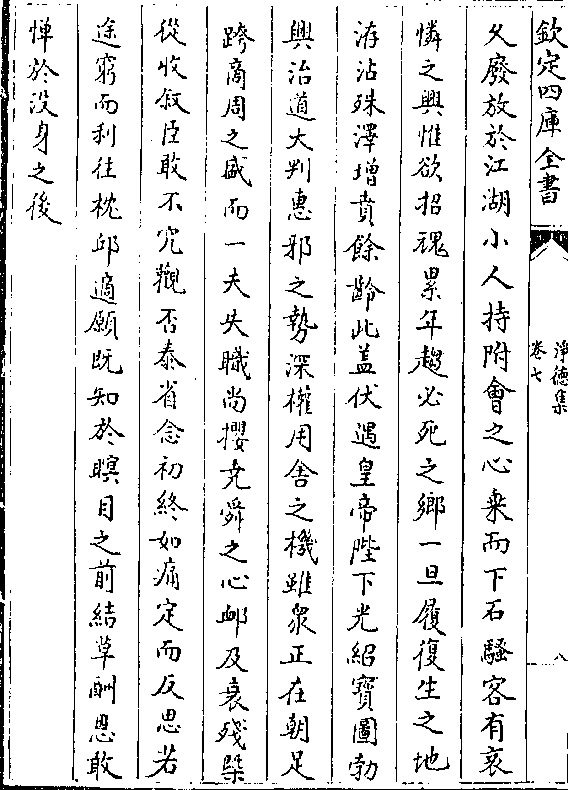 欽定四庫全書
淨德集
卷七
八
久廢放於江湖小人持附會之心乗而下石騷客有哀
憐之興惟欲招魂累年趨必死之鄉一旦履復生之地
洊沾殊澤増賁餘齡此盖伏遇皇帝陛下光紹寶圖勃
興治道大判惪邪之勢深權用舍之機雖衆正在朝足
跨商周之盛而一夫失職尚攖堯舜之心邮及衰殘槩
從收叙臣敢不究觀否泰省念初終如痛定而反思若
途窮而利往枕邱適願既知於瞑目之前結草酬恩敢
憚於没身之後